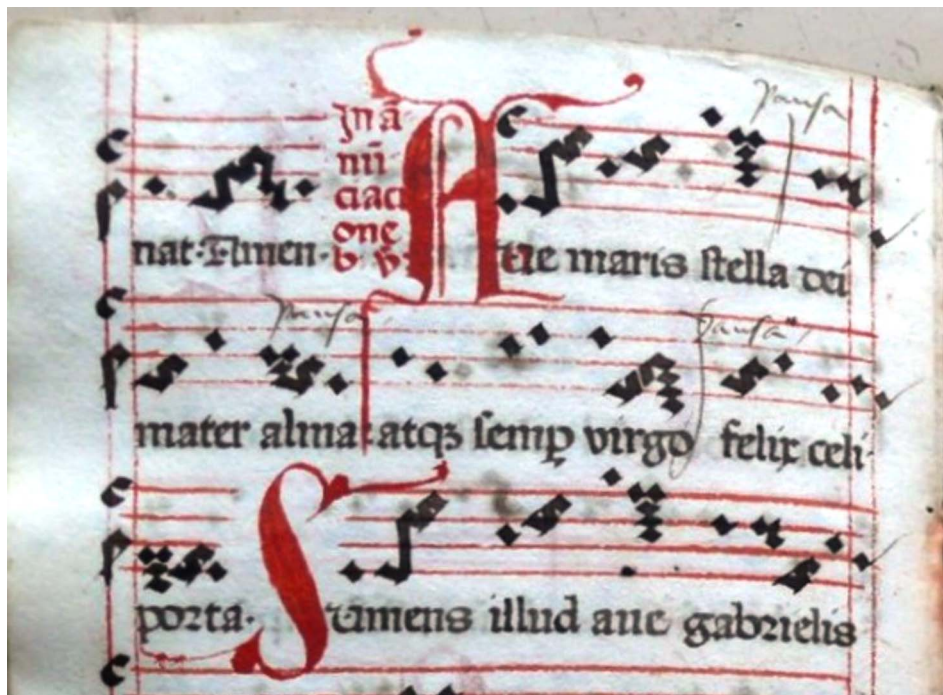 In ā
nū
ciaci
one
b v
pausa
nat. Amen. Aue maris stella dei
pausa pausa
mater alma atqꝫ semꝑ virgo felix celi
porta. Sumens illud aue gabrielis